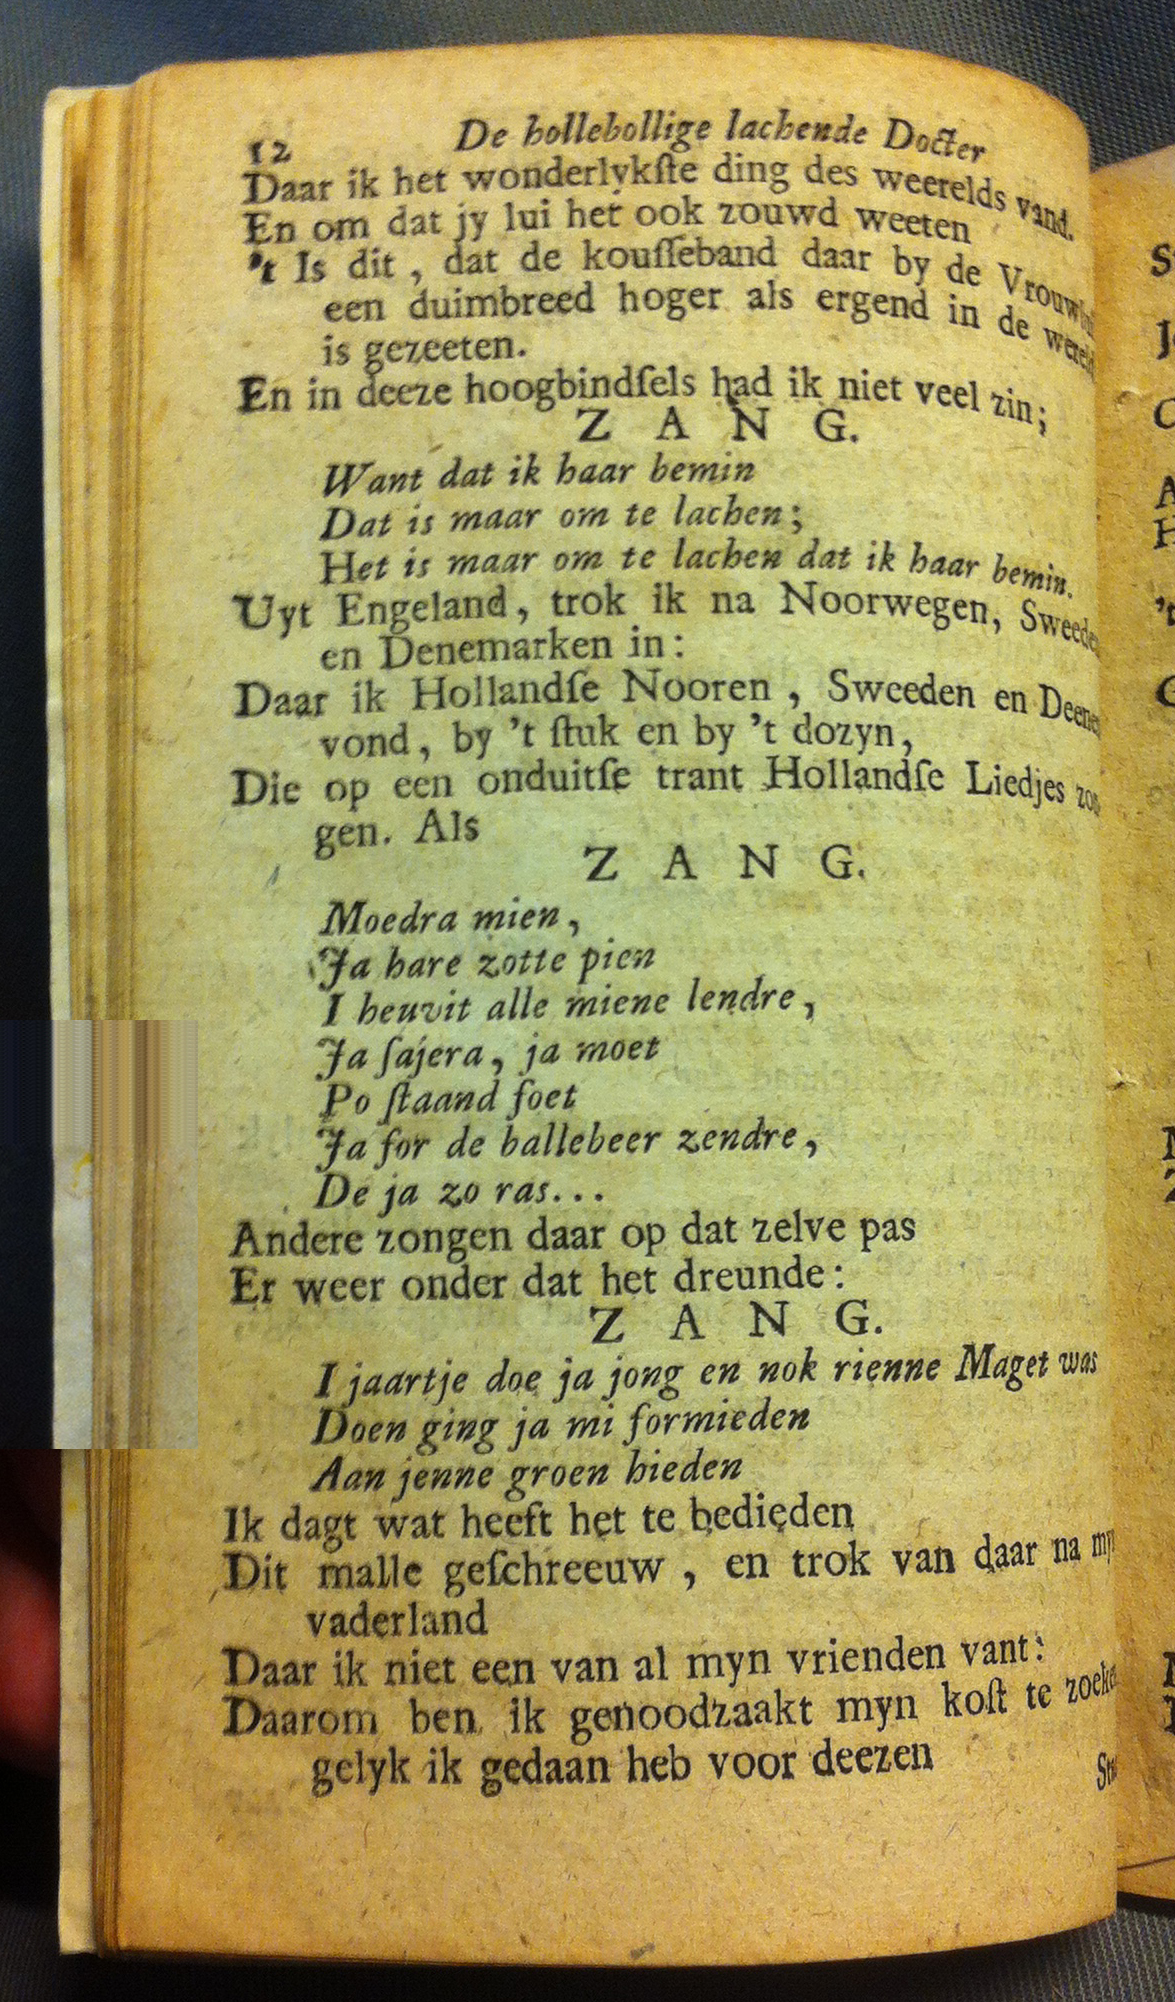 12 De hollebollige lachende Docter
Daar ik het wonderlykſte ding des weerelds vand.
En om dat jy lui het ook zouwd weeten
't Is dit, dat de kouſſeband daar by de
een duimbreed hoger als ergend in de
is gezeeten.
En in deeze hoogbindſels had ik niet veel zin;
ZANG.
Want dat ik haar bemin
Dat is maar om te lachen;
Het is maar om te lachen dat ik haar bemin.
Uyt Engeland, trok ik na Noorwegen, Sweeden
en Denemarken in:
Daar ik Hollandſe Nooren, Sweeden en Deenen
vond, by 't ſtuk en by 't dozyn,
Die op een onduitſe trant Hollandſe Liedjes zon
gen. Als
ZANG.
Moedra mien,
Ja hare zotte pien
I heuvit alle miene lendre,
Ja ſajera, ja moet
Po ſtaand foet
Ja for de ballebeer zendre,
De ja zo ras...
Andere zongen daar op dat zelve pas
Er weer onder dat het dreunde:
ZANG.
I jaartje doe ja jong en nok rienne Maget was
Doen ging ja mi formieden
Aan jenne groen hieden
Ik dagt wat heeft het te bedieden
Dit malle geſchreeuw, en trok van daar na myn
vaderland
Daar ik niet een van al myn vrienden vant:
Daarom ben ik genoodzaakt myn koſt te zoeken
gelyk ik gedaan heb voor deezen